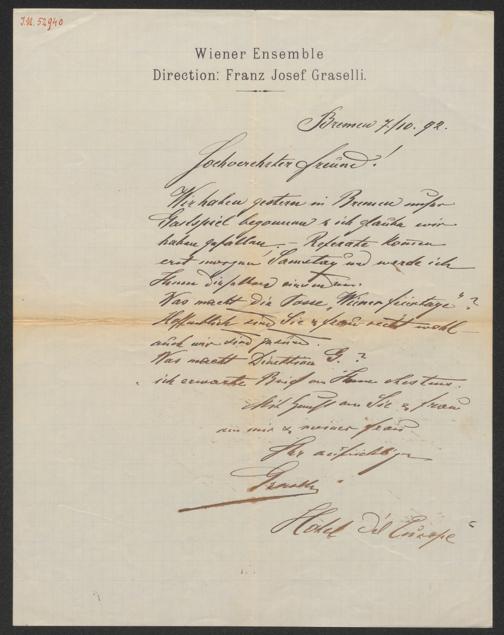 I.N. 52940
Wiener Ensemble
Direction: Franz Josef Graselli.
Bremen 7/10. 92.
Hochverehrter Freund!
Wir haben gestern in Bremen unser
Gastspiel begonnen & ich glaube wir
haben gefallen. – Referate kommen
erst morgen Samstag und werde ich
Ihnen dieselben einsenden.
Was macht die Posse „Wiener feiertage"?
Hoffentlich sind Sie & frau recht wohl
auch wir sind gesund.
Was macht Direktion G.?
ich erwarte Brief von Ihnen ehestens.
Mit Gruß an Sie & frau
von mir & meiner frau
Ihr aufrichtiger
Graselli
Hotel d'l Europe